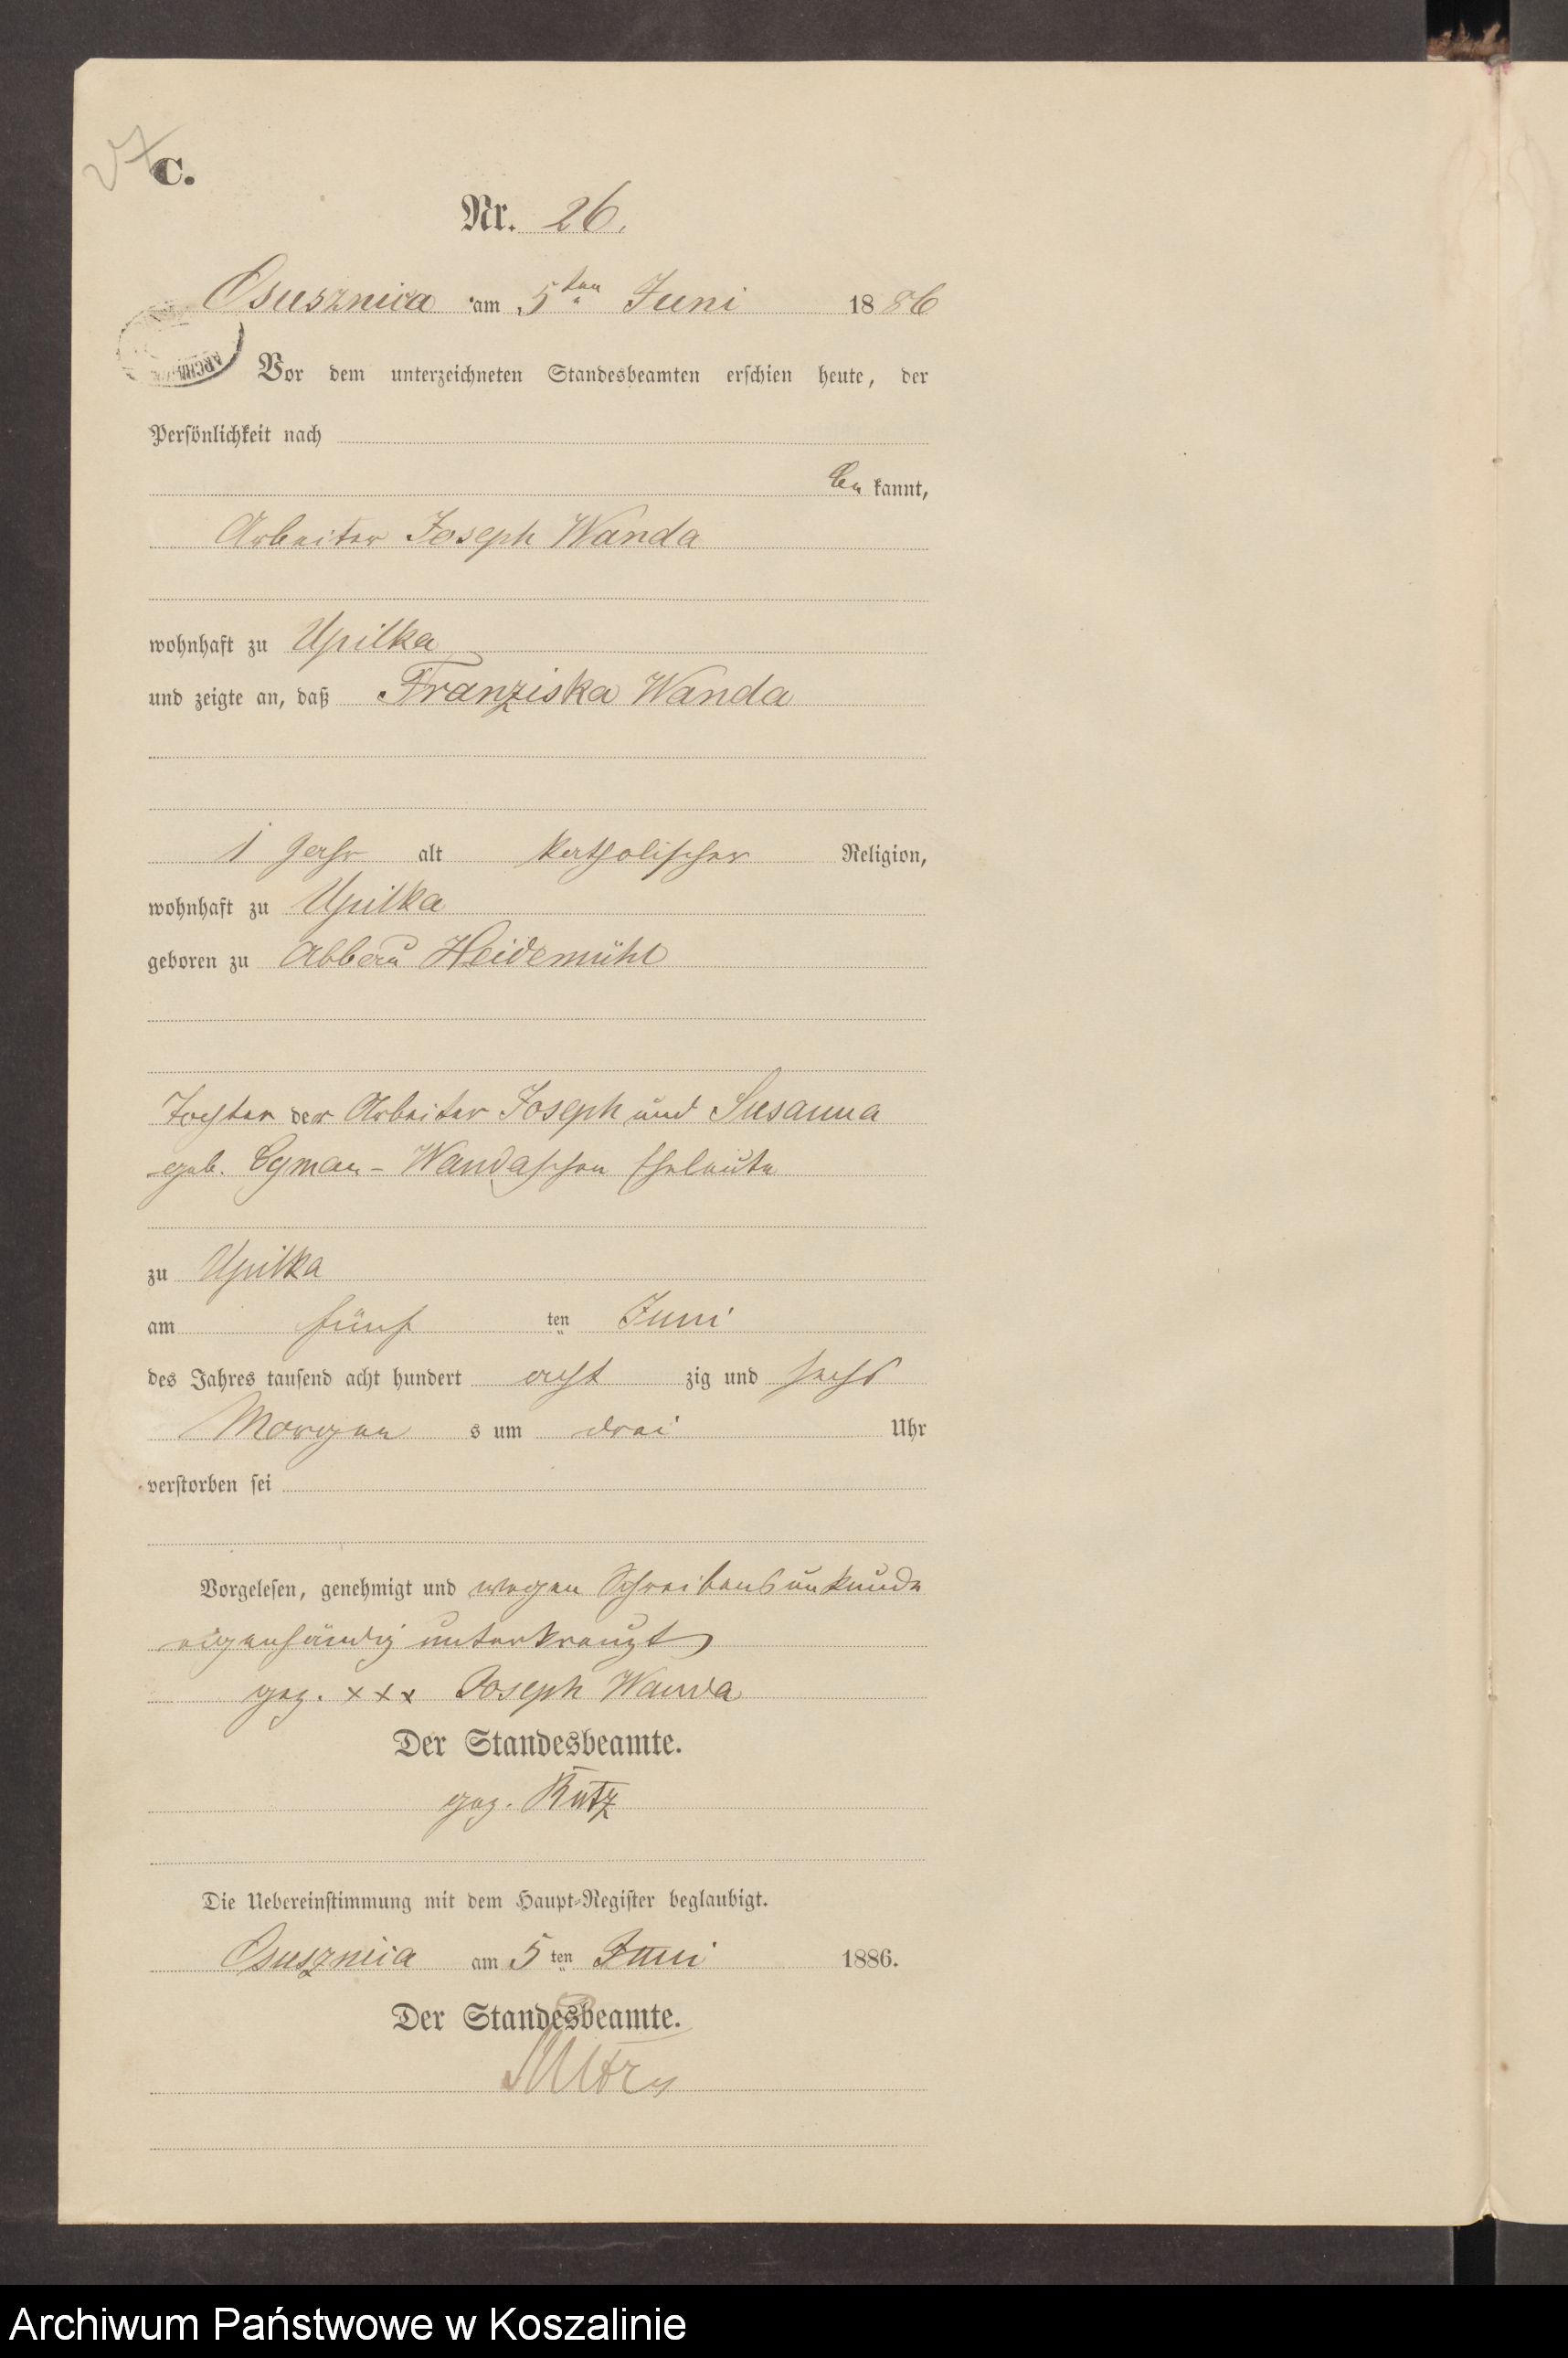 C.
Nr. 26.
Osusznica am 5ten Juni 1886
Vor dem unterzeichneten Standesbeamten erschien heute, der
Persönlichkeit nach
be kannt,
Arbeiter Joseph Wanda
wohnhaft zu Upilka
und zeigte an, daß Franziska Wanda
1 Jahr alt katholischer Religion,
wohnhaft zu Upilka
geboren zu Abbau Heidemühl
Tochter der Arbeiter Joseph und Susanna
geb. Cyman - Wandaschen Eheleute
zu Upilka
am fünf ten Juni
des Jahres tausend acht hundert acht zig und sechs
Morgen s um drei Uhr
verstorben sei
Vorgelesen, genehmigt und wegen Schreibensunkunde
eigenhändig unterkreuzt
gez. xxx Joseph Wanda
Der Standesbeamte.
gez. Kutz
Die Uebereinstimmung mit dem Haupt-Register beglaubigt.
Osusznica am 5 ten Juni 1886.
Der Standesbeamte.
Archiwum Państwowe w Koszalinie